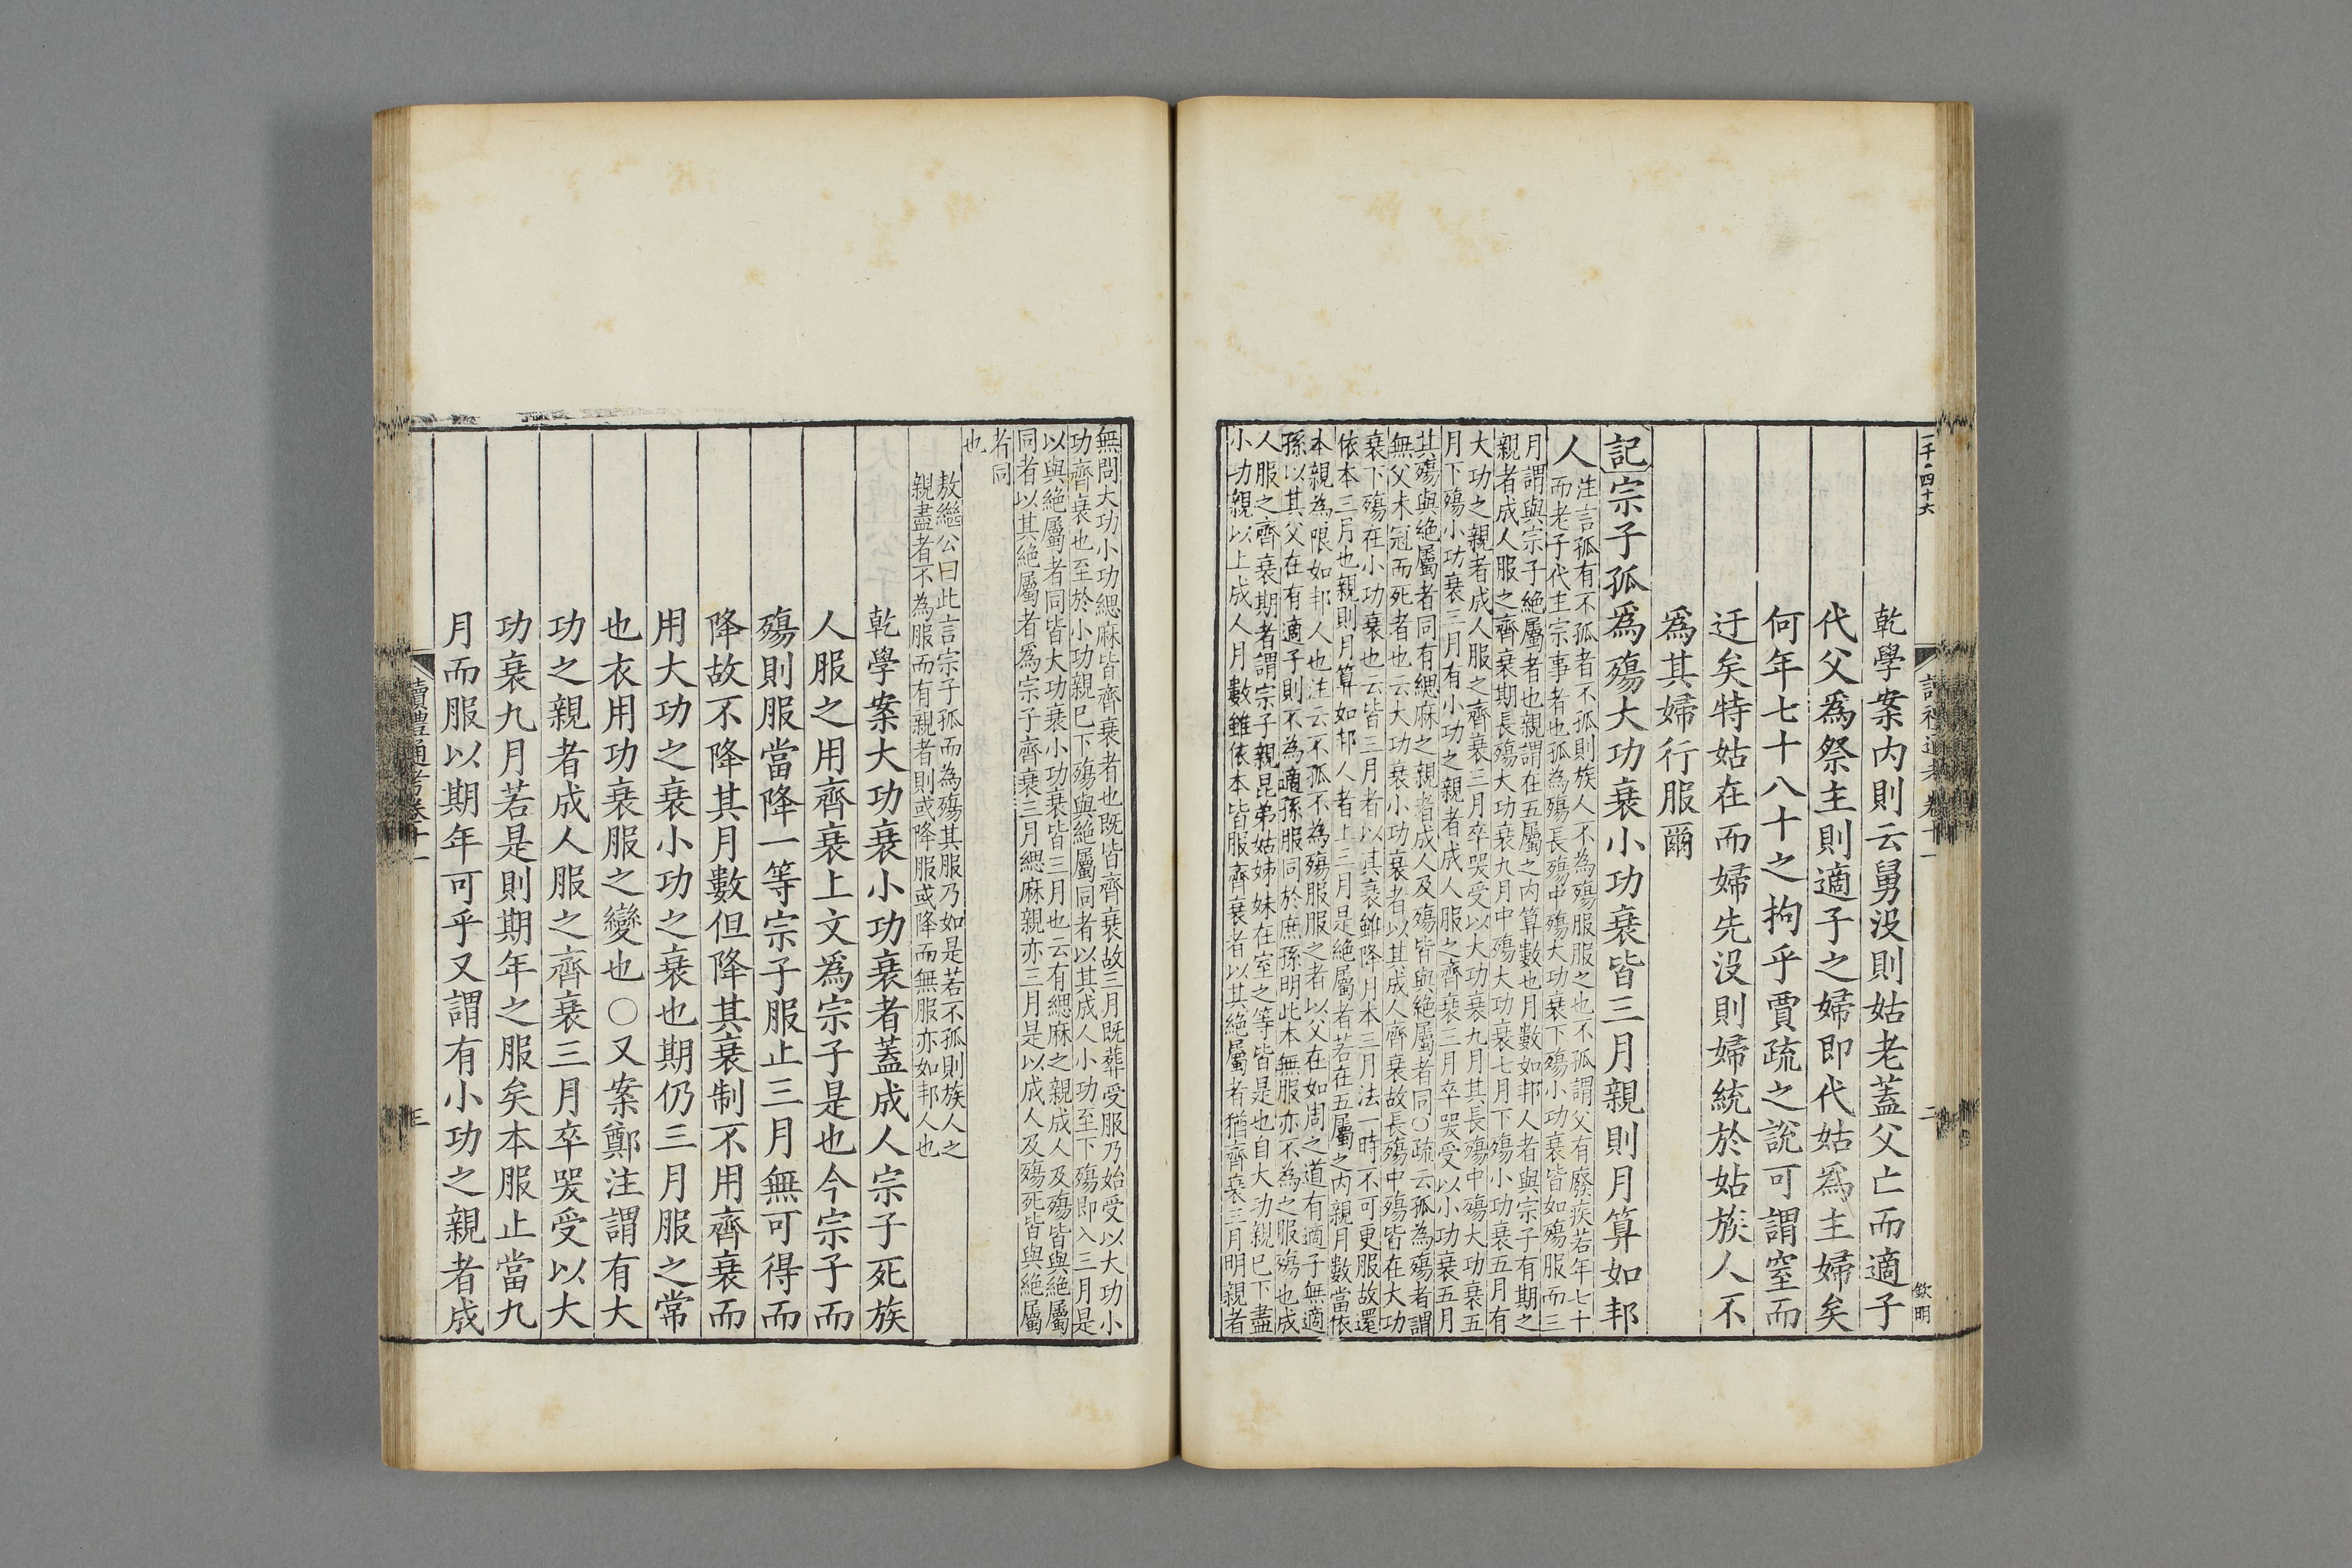 一千〇四十六
讀禮通考 卷十一
二
欽明
乾學案内則云舅没則姑老蓋父亡而適子
代父爲祭主則適子之婦即代姑爲主婦矣
何年七十八十之拘乎賈疏之說可謂窒而
迂矣特姑在而婦先没則婦統於姑族人不
爲其婦行服爾
記宗子孤爲殤大功衰小功衰皆三月親則月算如邦
人
注言孤有不孤者不孤則族人不為殤服服之也不孤謂父有廢疾若年七十
而老子代主宗事者也孤為殤長殤中殤大功衰下殤小功衰皆如殤服而三
月謂與宗子絶屬者也親謂在五屬之内算數也月數如邦人者與宗子有期之
親者成人服之齊衰期長殤大功衰九月中殤大功衰七月下殤小功衰五月有
大功之親者成人服之齊衰三月卒哭受以大功衰九月其長殤中殤大功衰五
月下殤小功衰三月有小功之親者成人服之齊衰三月卒哭受以小功衰五月
其殤與絶屬者同有緦麻之親者成人及殤皆與絶屬者同〇疏云孤為殤者謂
無父未冠而死者也云大功衰小功衰者以其成人齊衰故長殤中殤皆在大功
衰下殤在小功衰也云皆三月者以其衰雖降月本三月法一時不可更服故還
依本三月也親則月算如邦人者上三月是絶屬者若在五屬之内親月數當依
本親為限如邦人也注云不孤不為殤服服之者以父在如周之道有適子無適
孫以其父在有適子則不為適孫服同於庶孫明此本無服亦不為之服殤也成
人服之齊衰期者謂宗子親昆弟姑姊妹在室之等皆是也自大功親已下盡
小功親以上成人月數雖依本皆服齊衰者以其絶屬者猶齊衰三月明親者
無問大功小功緦麻皆齊衰者也既皆齊衰故三月既葬受服乃始受以大功小
功齊衰也至於小功親已下殤與絶屬同者以其成人小功至下殤即入三月是
以與絶屬者同皆大功衰小功衰皆三月也云有緦麻之親成人及殤皆與絶屬
同者以其絶屬者為宗子齊衰三月緦麻親亦三月是以成人及殤死皆與絶屬
者同
也
敖繼公曰此言宗子孤而為殤其服乃如是若不孤則族人之
親盡者不為服而有親者則或降服或降而無服亦如邦人也
乾學案大功衰小功衰者蓋成人宗子死族
人服之用齊衰上文爲宗子是也今宗子而
殤則服當降一等宗子服止三月無可得而
降故不降其月數但降其衰制不用齊衰而
用大功之衰小功之衰也期仍三月服之常
也衣用功衰服之變也〇又案鄭注謂有大
功之親者成人服之齊衰三月卒哭受以大
功衰九月若是則期年之服矣本服止當九
月而服以期年可乎又謂有小功之親者成
讀禮通考卷十一
三